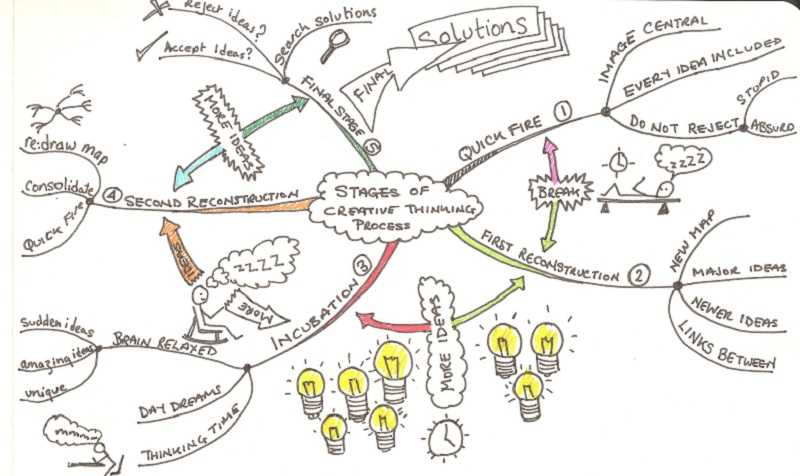 STAGES OF
CREATIVE THINKING
PROCESS
QUICK FIRE 1
IMAGE CENTRAL
EVERY IDEA INCLUDED
DO NOT REJECT
STUPID
ABSURD
BREAK
ZZZZ
FIRST RECONSTRUCTION 2
NEW MAP
MAJOR IDEAS
NEWER IDEAS
LINKS BETWEEN
MORE IDEAS
INCUBATION 3
BRAIN RELAXED
sudden ideas
amazing ideas
unique
DAY DREAMS
THINKING TIME
mmmm
ZZZZ
MORE
IDEAS
4 SECOND RECONSTRUCTION
re:draw map
Consolidate
QUICK FIRE
MORE IDEAS
FINAL STAGE 5
Reject ideas?
Accept Ideas?
Search solutions
FINAL
Solutions